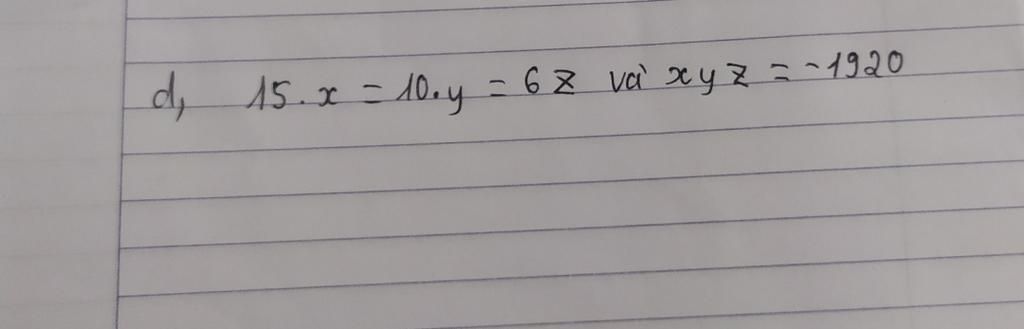 d, 15.x = 10.y = 6z và xyz = -1920